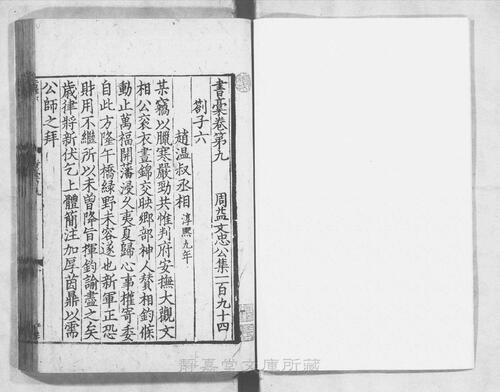 書稾卷第九　周益文忠公集一百九十四
劄子六
趙温叔丞相 淳熙九年
某竊以臘寒嚴勁共惟判府安撫大觀文
相公衮衣晝錦交映鄉部神人贊相鈞候
動止萬福開藩浸久夷夏歸心事權寄委
自此方隆午橋緑野未容遂也新軍正恐
財用不繼所以未曽降旨揮鈞諭盡之矣
歲律將新伏乞上體簡注加厚茵鼎以需
公師之拜
静嘉堂文庫所藏